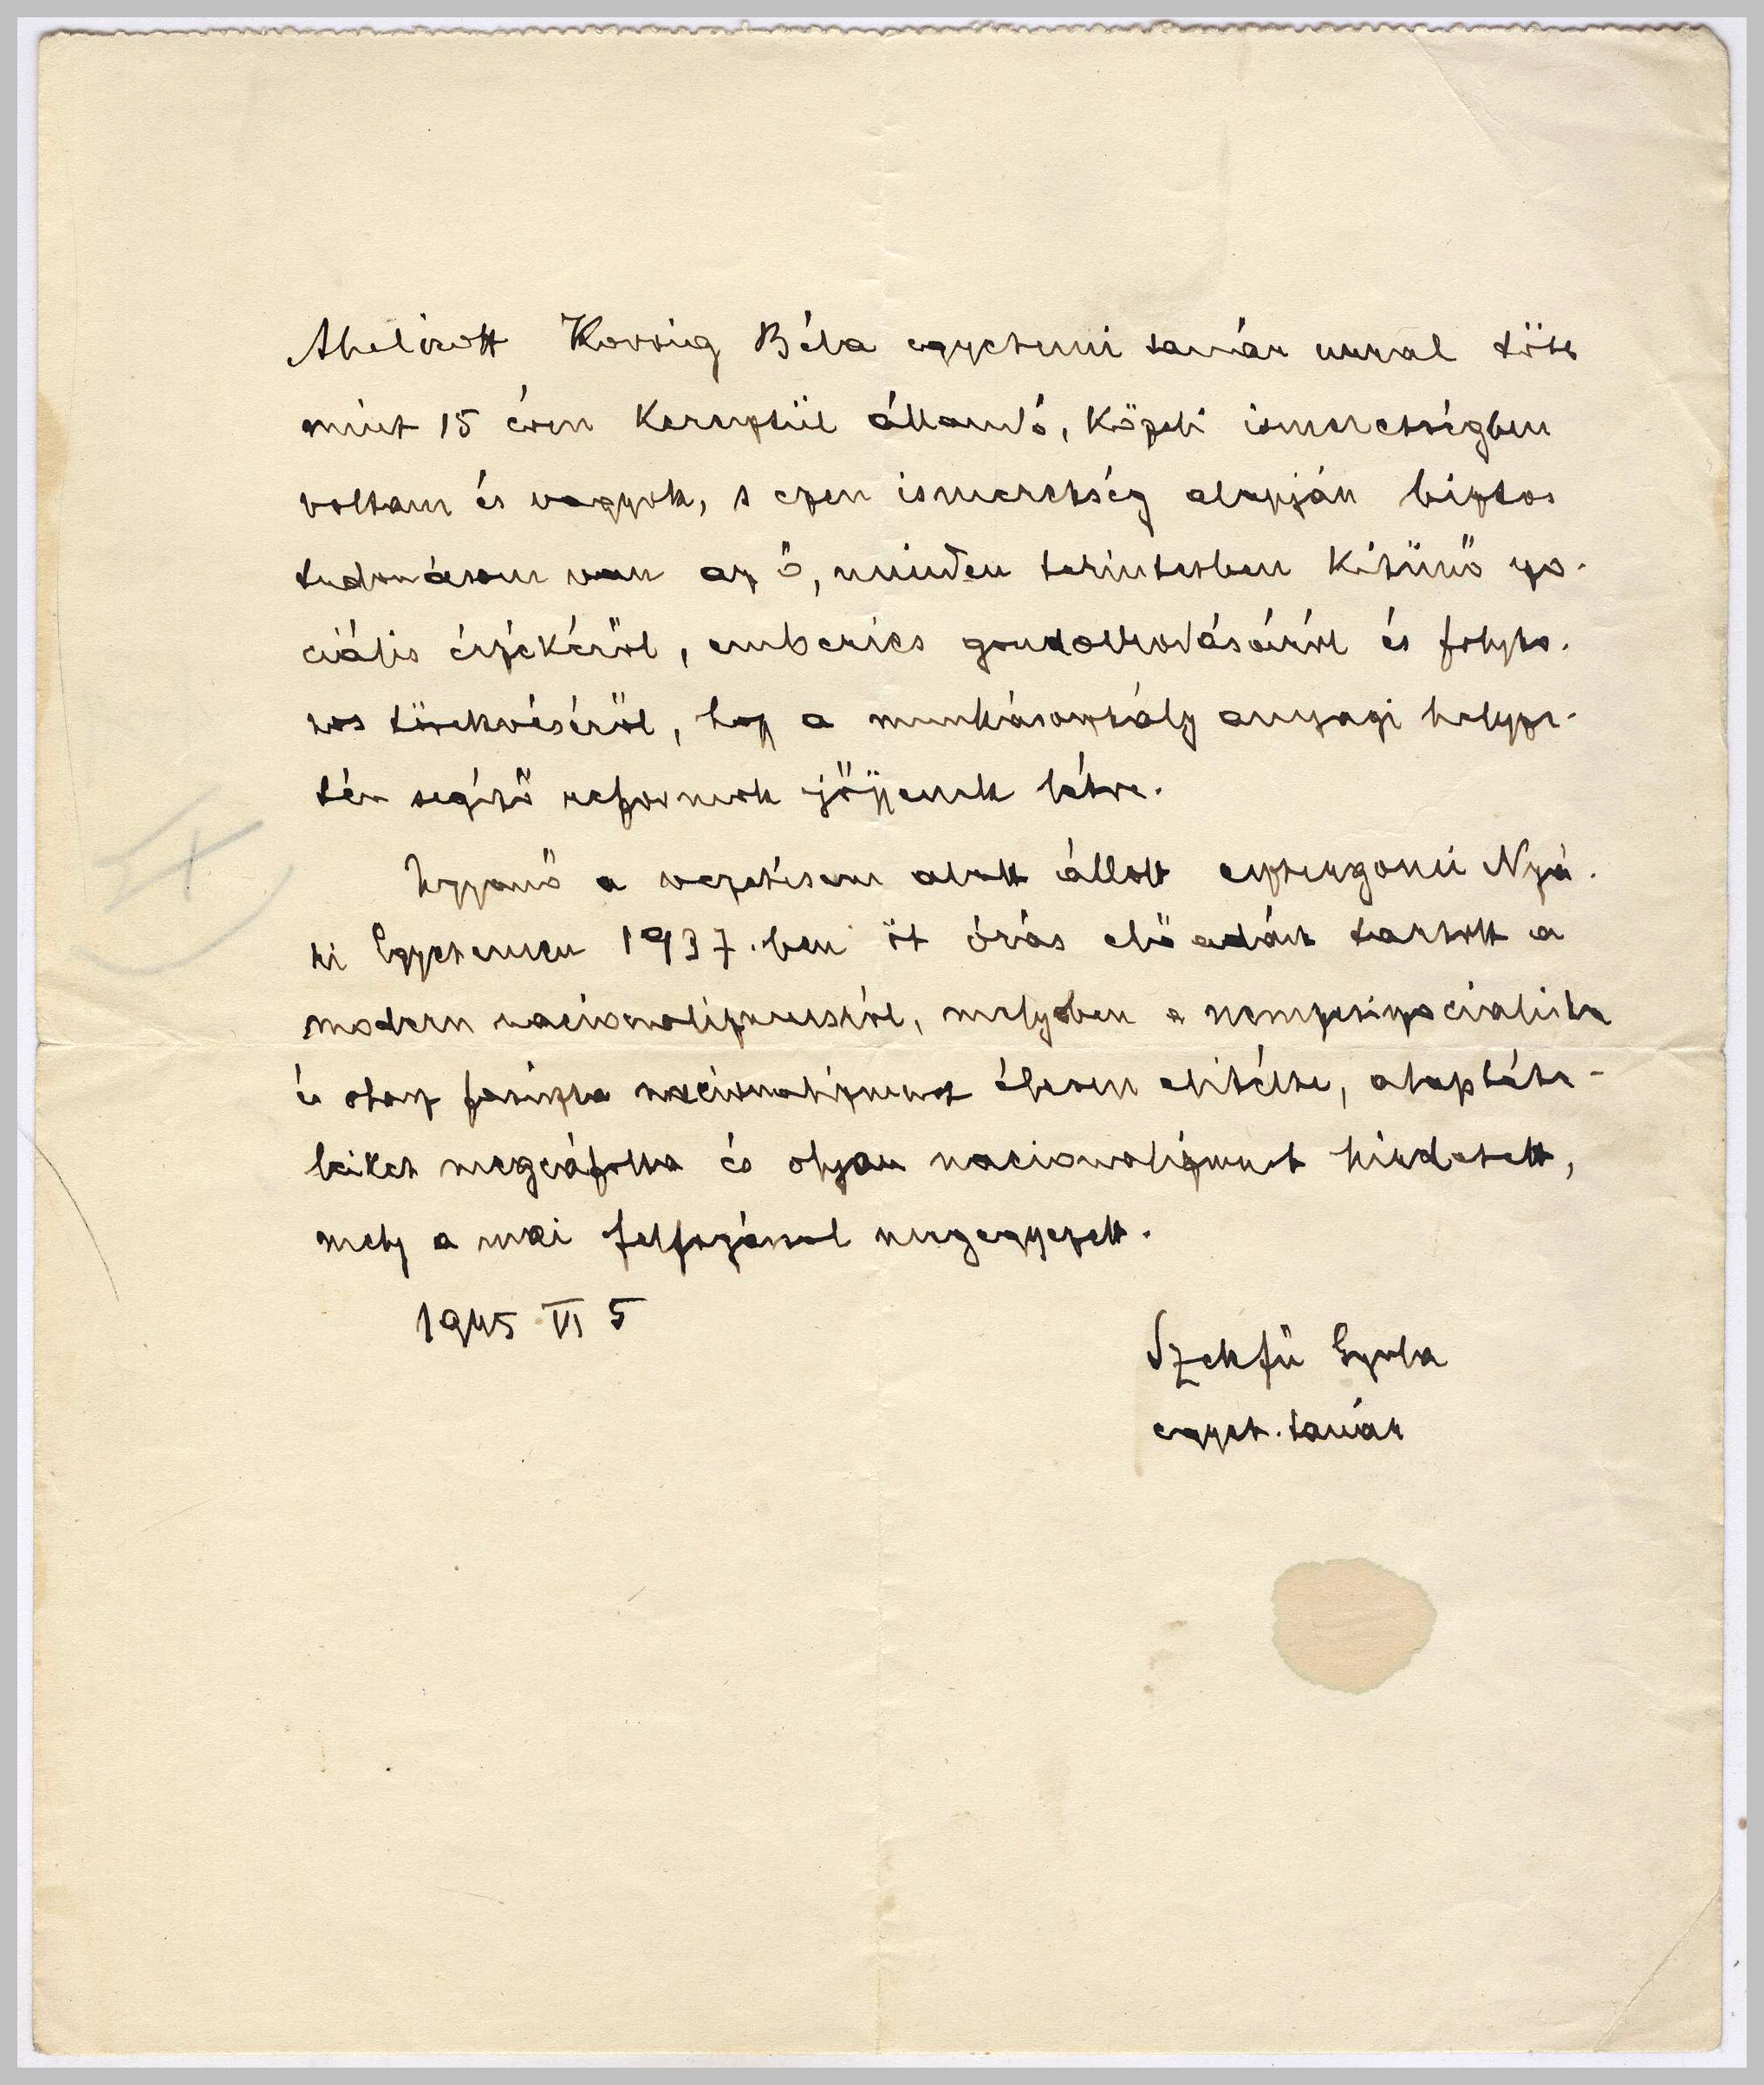 Alulírott Kovrig Béla egyetemi tanár urral több
mint 15 éven keresztül állandó, közeli ismeretségben
voltam és vagyok, s ezen ismeretség alapján biztos
tudomásom van az ő, minden tekintetben kitünő szo-
ciális érzékéről, emberies gondolkodásáról és folyto-
nos törekvéséről, hogy a munkásosztály anyagi helyze-
tén segítő reformok jöjjenek létre.
Ugyanő a vezetésem alatt állott esztergomi Nyá-
ri Egyetemen 1937-ben öt órás előadást tartott a
modern nacionalizmusról, melyben a nemzetiszocialista
és olasz fasiszta nacionalizmust élesen elitélte, alaptéte-
leiket megcáfolta és olyan nacionalizmust hirdetett,
mely a mai felfogással megegyezett.
1945 VI 5
Szekfü Gyula
egyet. tanár